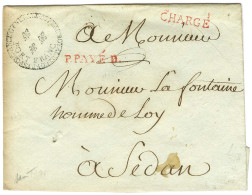 CHARGÉ
A Monsieur
P.PAYÉ.D.
Monsieur La fontaine
homme de Loy
à Sedan